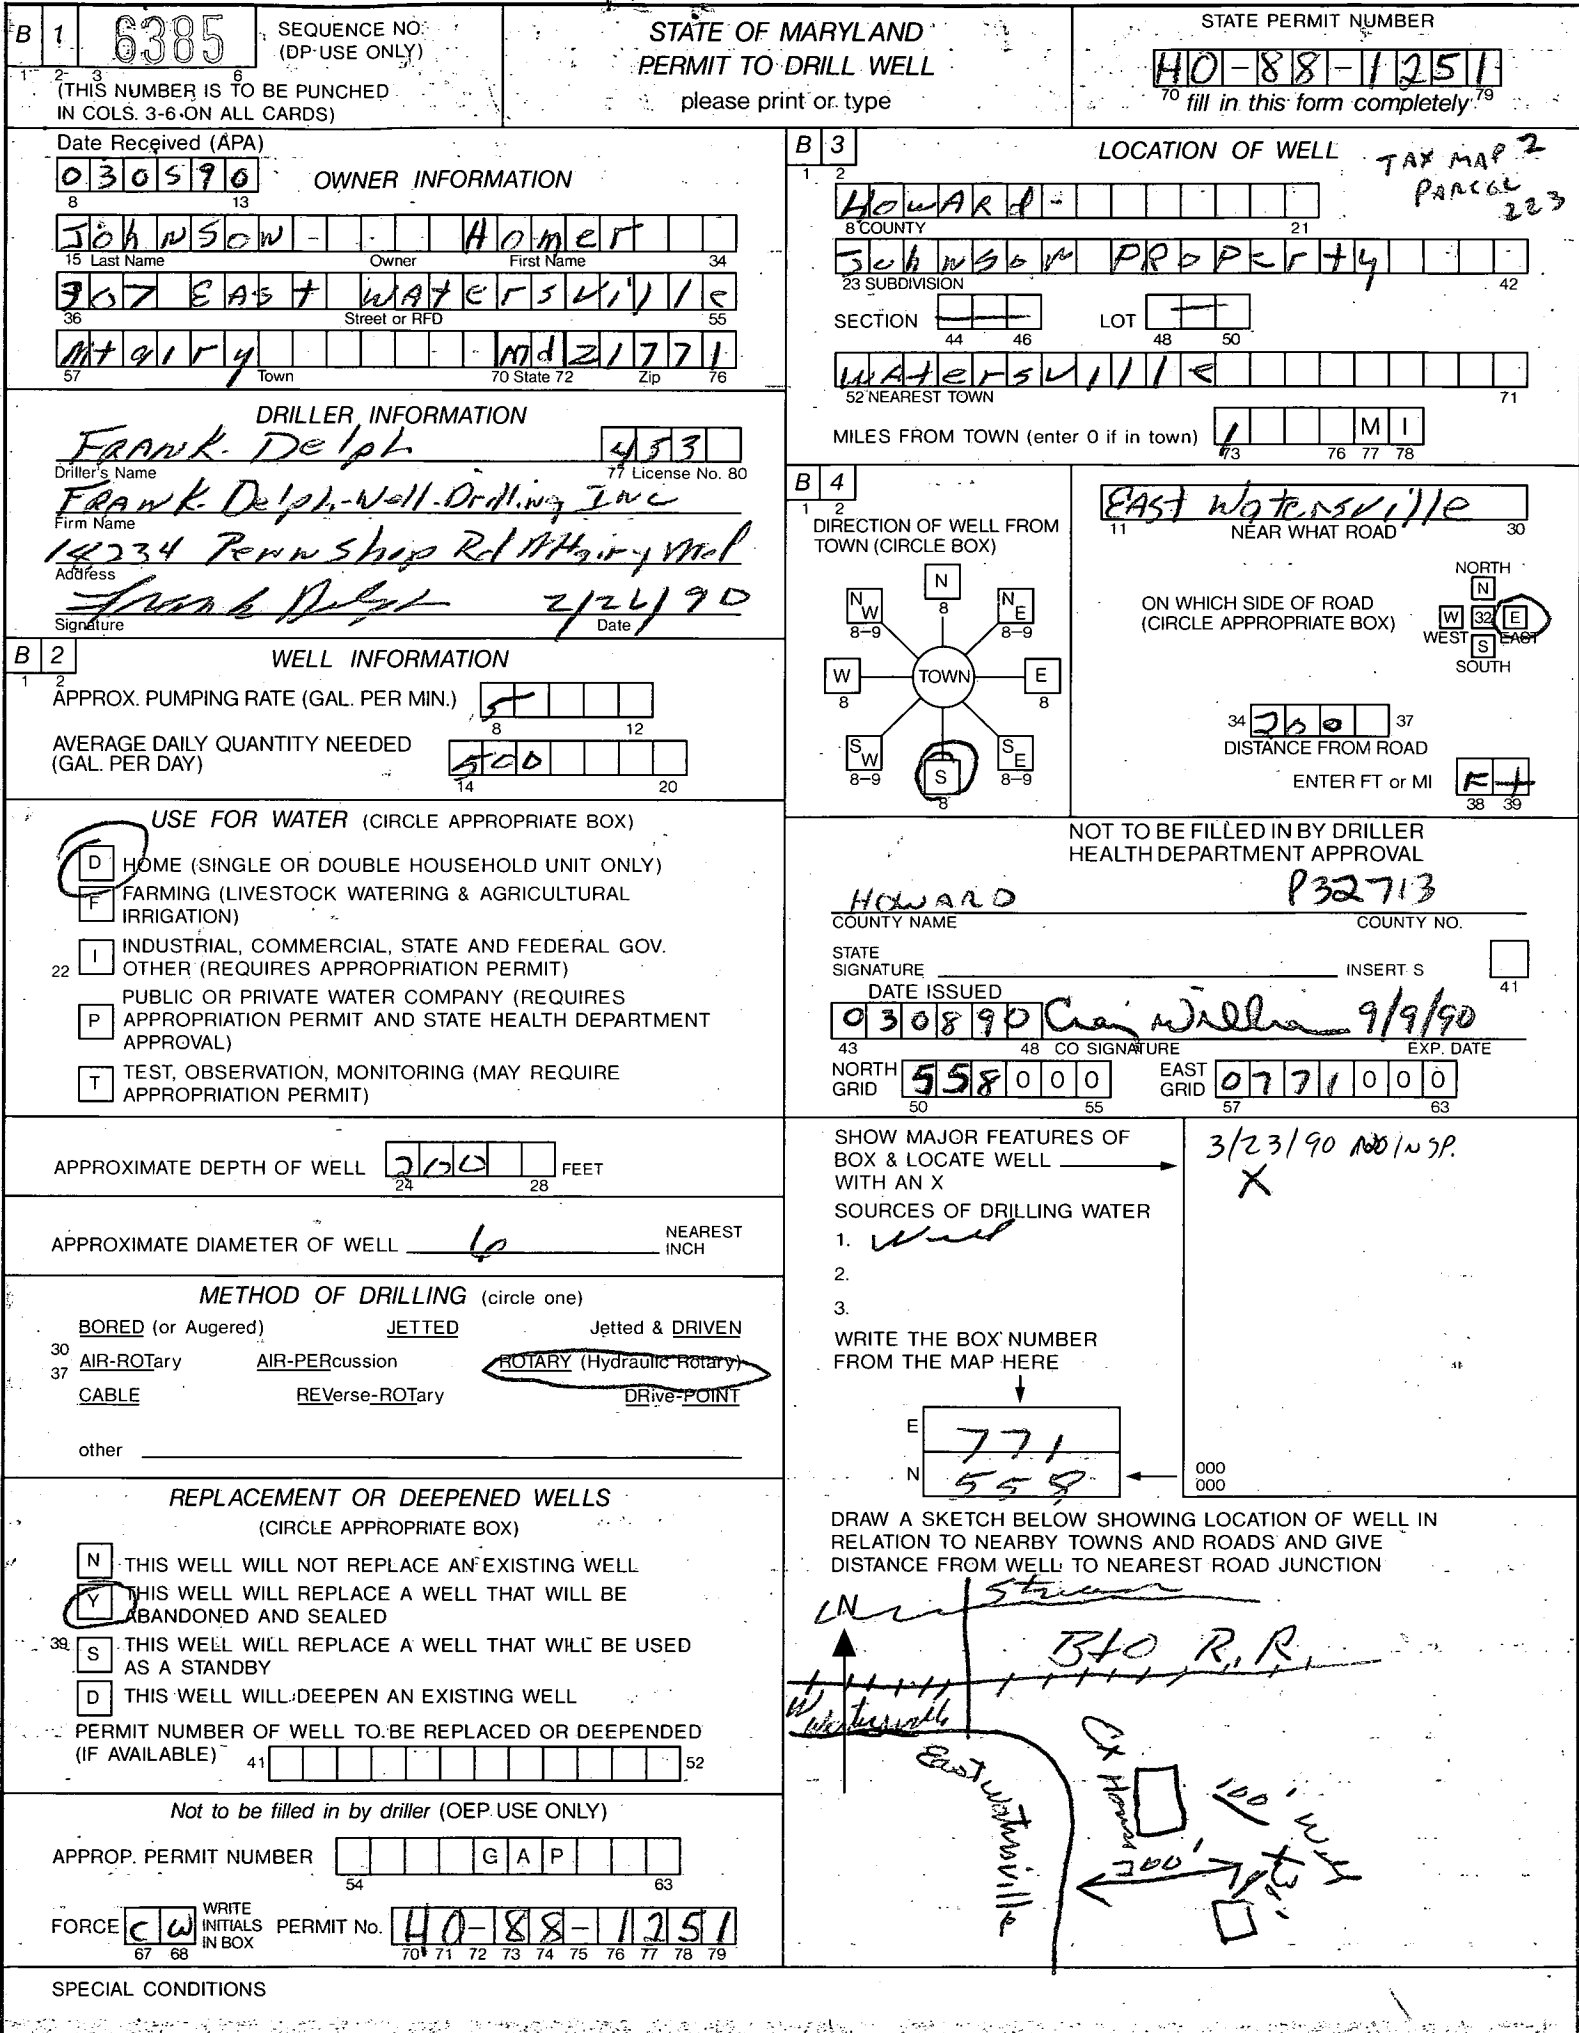 B 1 6385 SEQUENCE NO. (DP USE ONLY)
1 2 3 6
(THIS NUMBER IS TO BE PUNCHED
IN COLS. 3-6 ON ALL CARDS)
STATE OF MARYLAND
PERMIT TO DRILL WELL
please print or type
STATE PERMIT NUMBER
HO-88-1251
70 fill in this form completely 79
Date Received (APA)
030590 OWNER INFORMATION
8 13
Johnson Homer
15 Last Name Owner First Name 34
307 EAST Watersville
36 Street or RFD 55
Mt airy Md 21771
57 Town 70 State 72 Zip 76
DRILLER INFORMATION
FRANK. Delph 453
Driller's Name 77 License No. 80
FRANK. Delph-Well-Drilling INC
Firm Name
14234 Penn Shop Rd Mt airy Md
Address
Frank Delph 2/26/90
Signature Date
B 2 WELL INFORMATION
1 2
APPROX. PUMPING RATE (GAL. PER MIN.) 5
8 12
AVERAGE DAILY QUANTITY NEEDED
(GAL. PER DAY) 500
14 20
USE FOR WATER (CIRCLE APPROPRIATE BOX)
D HOME (SINGLE OR DOUBLE HOUSEHOLD UNIT ONLY)
F FARMING (LIVESTOCK WATERING & AGRICULTURAL
IRRIGATION)
I INDUSTRIAL, COMMERCIAL, STATE AND FEDERAL GOV.
22 OTHER (REQUIRES APPROPRIATION PERMIT)
PUBLIC OR PRIVATE WATER COMPANY (REQUIRES
P APPROPRIATION PERMIT AND STATE HEALTH DEPARTMENT
APPROVAL)
T TEST, OBSERVATION, MONITORING (MAY REQUIRE
APPROPRIATION PERMIT)
APPROXIMATE DEPTH OF WELL 200 FEET
24 28
APPROXIMATE DIAMETER OF WELL 6 NEAREST
INCH
METHOD OF DRILLING (circle one)
BORED (or Augered) JETTED Jetted & DRIVEN
30
37 AIR-ROTary AIR-PERcussion ROTARY (Hydraulic Rotary)
CABLE REVerse-ROTary DRive-POINT
other
REPLACEMENT OR DEEPENED WELLS
(CIRCLE APPROPRIATE BOX)
N THIS WELL WILL NOT REPLACE AN EXISTING WELL
Y THIS WELL WILL REPLACE A WELL THAT WILL BE
ABANDONED AND SEALED
39 S THIS WELL WILL REPLACE A WELL THAT WILL BE USED
AS A STANDBY
D THIS WELL WILL DEEPEN AN EXISTING WELL
PERMIT NUMBER OF WELL TO BE REPLACED OR DEEPENDED
(IF AVAILABLE) 41 52
Not to be filled in by driller (OEP USE ONLY)
APPROP. PERMIT NUMBER GAP
54 63
FORCE CW WRITE INITIALS IN BOX PERMIT No. HO-88-1251
67 68 70 71 72 73 74 75 76 77 78 79
SPECIAL CONDITIONS
B 3 LOCATION OF WELL TAX MAP 2
1 2 PARCEL 223
HOWARd
8 COUNTY 21
Johnson PROPerty
23 SUBDIVISION 42
SECTION LOT
44 46 48 50
Watersville
52 NEAREST TOWN 71
MILES FROM TOWN (enter 0 if in town) 1 MI
73 76 77 78
B 4
1 2
DIRECTION OF WELL FROM
TOWN (CIRCLE BOX)
N
8
NW NE
8-9 8-9
W TOWN E
8 8
SW S SE
8-9 8 8-9
EAST Watersville
11 NEAR WHAT ROAD 30
ON WHICH SIDE OF ROAD
(CIRCLE APPROPRIATE BOX)
NORTH
N
W 32 E
WEST EAST
S
SOUTH
34 200 37
DISTANCE FROM ROAD
ENTER FT or MI Ft
38 39
NOT TO BE FILLED IN BY DRILLER
HEALTH DEPARTMENT APPROVAL
HOWARD P32713
COUNTY NAME COUNTY NO.
STATE
SIGNATURE INSERT S
41
DATE ISSUED
030890 Craig William 9/9/90
43 48 CO SIGNATURE EXP. DATE
NORTH GRID 558000 EAST GRID 0771000
50 55 57 63
SHOW MAJOR FEATURES OF
BOX & LOCATE WELL
WITH AN X
3/23/90 NO INSP.
X
SOURCES OF DRILLING WATER
1. Well
2.
3.
WRITE THE BOX NUMBER
FROM THE MAP HERE
E 771
N 558
000
000
DRAW A SKETCH BELOW SHOWING LOCATION OF WELL IN
RELATION TO NEARBY TOWNS AND ROADS AND GIVE
DISTANCE FROM WELL TO NEAREST ROAD JUNCTION
N
Stream
B+O R.R.
W Watersville
East Watersville
Ex House
100'
Well
X
30'
200'